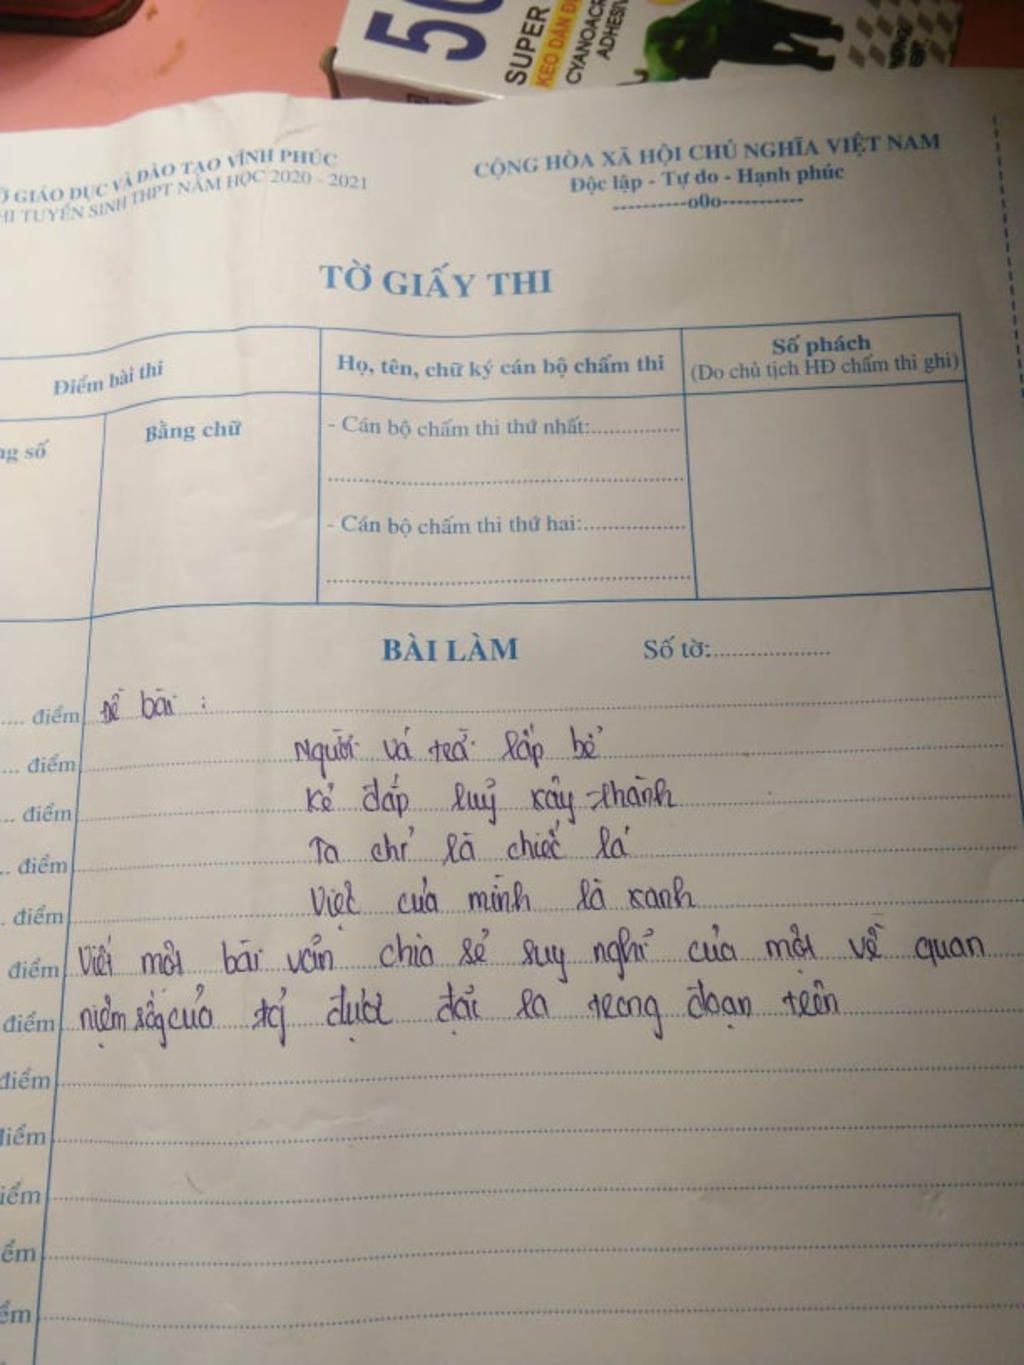 50
SUPER
KEO DÁN Đ
CYANOACR
ADHESIV
Ở GIÁO DỤC VÀ ĐÀO TẠO VĨNH PHÚC
HI TUYỂN SINH THPT NĂM HỌC 2020 - 2021
CỘNG HÒA XÃ HỘI CHỦ NGHĨA VIỆT NAM
Độc lập - Tự do - Hạnh phúc
----------o0o-----------
TỜ GIẤY THI
Điểm bài thi
Họ, tên, chữ ký cán bộ chấm thi
Số phách
(Do chủ tịch HĐ chấm thi ghi)
ng số
Bằng chữ
- Cán bộ chấm thi thứ nhất:
- Cán bộ chấm thi thứ hai:
BÀI LÀM
Số tờ:
.... điểm Đề bài :
... điểm Người vá trời lấp bể
.. điểm Kẻ đắp luỹ xây thành
.. điểm Ta chỉ là chiếc lá
. điểm Việc của mình là xanh
điểm Viết một bài văn chia sẻ suy nghĩ của một về quan
điểm niệm sống của tg được đặt ra trong đoạn trên
điểm
điểm
iểm
ểm
ểm